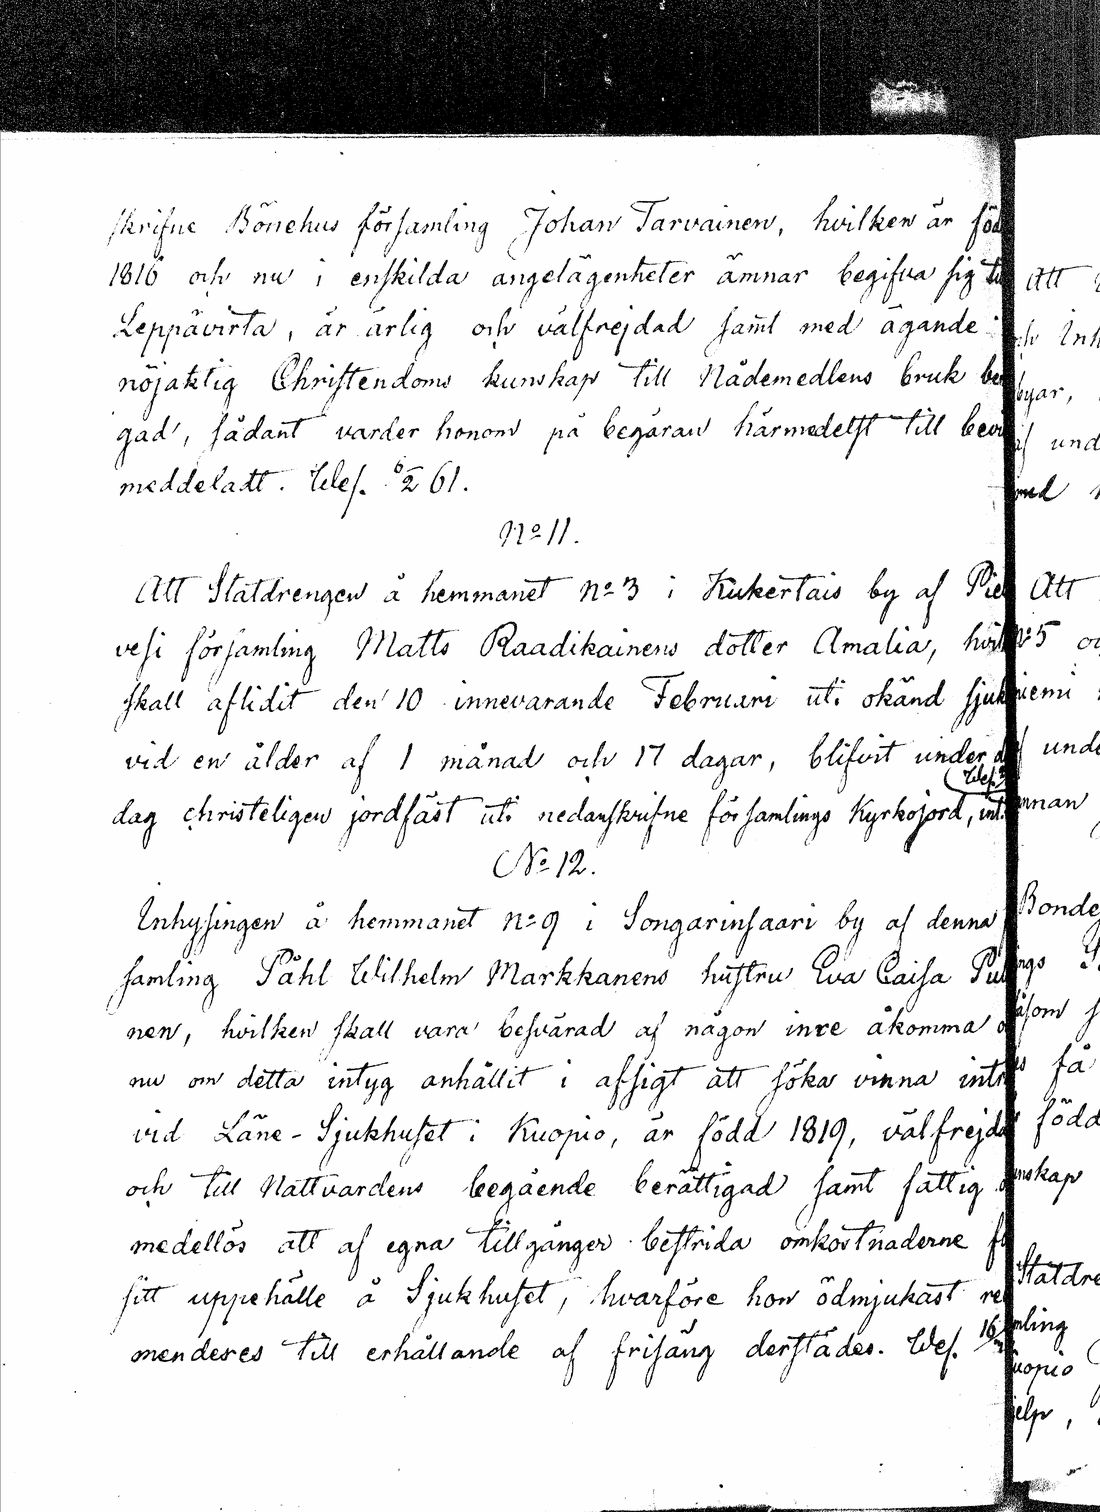 skrifne Bönehus församling Johan Tarvainen, hvilken är föd
1816 och nu i enskilda angelägenheter ämnar begifva sig ti
Leppävirta, är ärlig och välfrejdad samt med ägande
nöjaktig Christendoms kunskap till Nådemedlens bruk be
gad, sådant varder honom på begäran härmedelst till bevi
meddeladt. Wes. 6/2 61.
No 11.
Att Statdrengen å hemmanet No 3 i Kukertais by af Pie
vesi församling Matts Raadikainens dotter Amalia, hvil
skall aflidit den 10 innevarande Februari uti okänd sjuk
vid en ålder af 1 månad och 17 dagar, blifvit under d
Wes.
dag christeligen jordfäst uti nedanskrifne församlings Kyrkojord, int.
No 12.
Inhysingen å hemmanet No 9 i Songarinsaari by af denna
samling Påhl Wilhelm Markkanens hustru Eva Caisa Pu
nen, hvilken skall vara besvärad af någon inre åkomma o
nu om detta intyg anhållit i afsigt att söka vinna intr
vid Läne-Sjukhuset i Kuopio, är född 1819, välfrejda
och till Nattvardens begående berättigad samt fattig o
medellös att af egna tillgånger bestrida omkostnaderne fö
sitt uppehälle å Sjukhuset, hvarföre hon ödmjukast re
menderes till erhållande af frisäng derstädes. Wes. 16/2
Att
och Inh
byar,
af und
med
Att
No 5 oc
niemi
af unde
annan
Bonde
ings
såsom s
få
född
unskap
Statdre
mling
uopio
jelp,